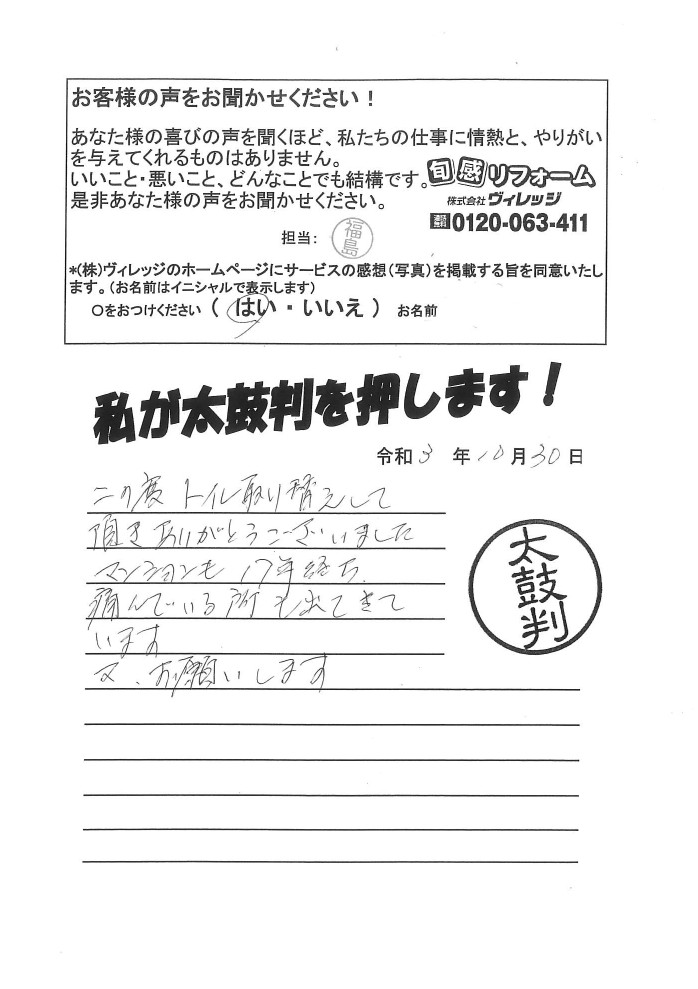 お客様の声をお聞かせください！
あなた様の喜びの声を聞くほど、私たちの仕事に情熱と、やりがい
を与えてくれるものはありません。
いいこと・悪いこと、どんなことでも結構です。
是非あなた様の声をお聞かせください。
旬感リフォーム
株式会社ヴィレッジ
0120-063-411
担当：
福島
*(株)ヴィレッジのホームページにサービスの感想(写真)を掲載する旨を同意いたし
ます。(お名前はイニシャルで表示します)
○をおつけください（ はい ・ いいえ ） お名前
私が太鼓判を押します！
令和 3 年 10 月 30 日
この度 トイレ取り替えして
頂きありがとうございました
マンションも 17年経ち
痛んでいる所も出てきて
います
又、お願いします
太鼓判